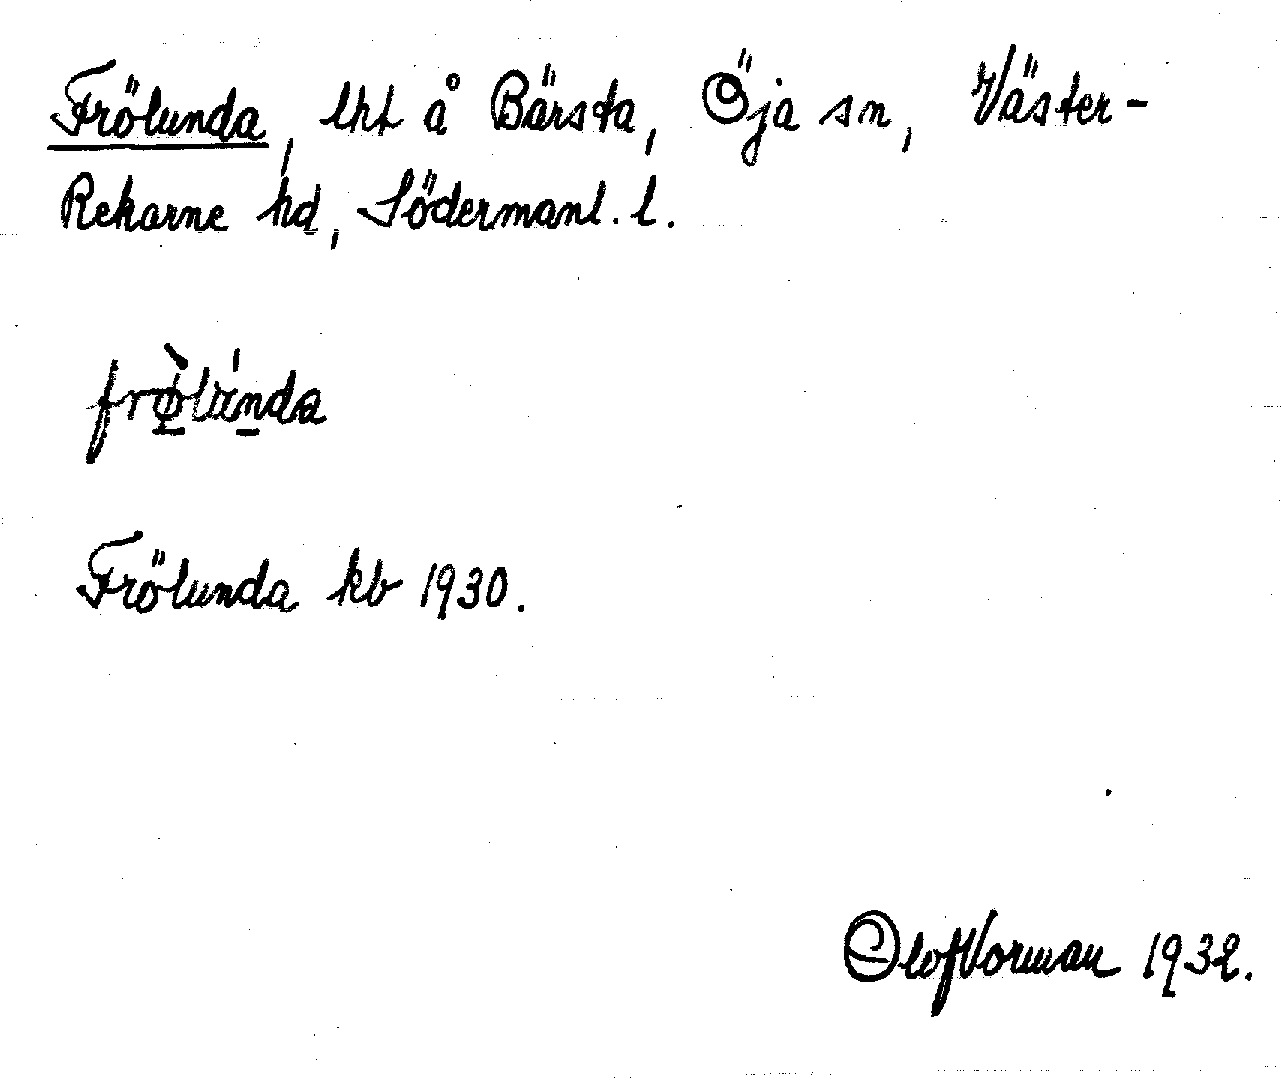 Frölunda, lht å Bärsta, Öja sn, Väster-
Rekarne hd, Södermanl. l.
frø̀lúnda
Frölunda kb 1930.
Olof Vorman 1932.